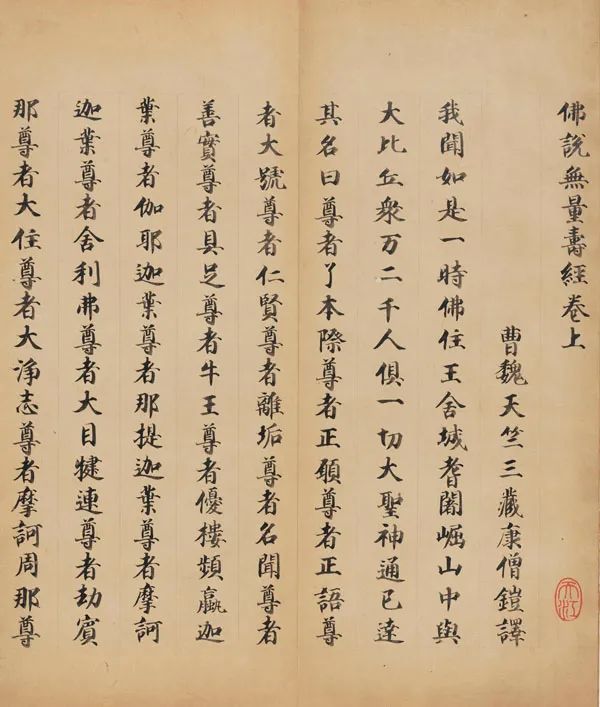 佛說無量壽經卷上
曹魏天竺三藏康僧鎧譯
我聞如是一時佛住王舍城耆闍崛山中與
大比丘衆万二千人俱一切大聖神通已達
其名曰尊者了本際尊者正願尊者正語尊
者大號尊者仁賢尊者離垢尊者名聞尊者
善實尊者具足尊者牛王尊者優樓頻蠃迦
葉尊者伽耶迦葉尊者那提迦葉尊者摩訶
迦葉尊者舍利弗尊者大目犍連尊者劫賓
那尊者大住尊者大淨志尊者摩訶周那尊